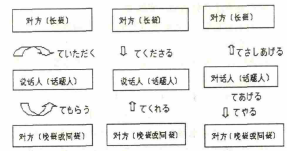 对方（长辈） 对方（长辈） 对方（长辈）
ていただく てくださる てさしあげる
说话人（话题人） 说话人（话题人） 对话人（话题人）
てあげる
てもらう てくれる てやる
对方（晚辈或同辈） 对方（晚辈或同辈） 对方（晚辈或同辈）